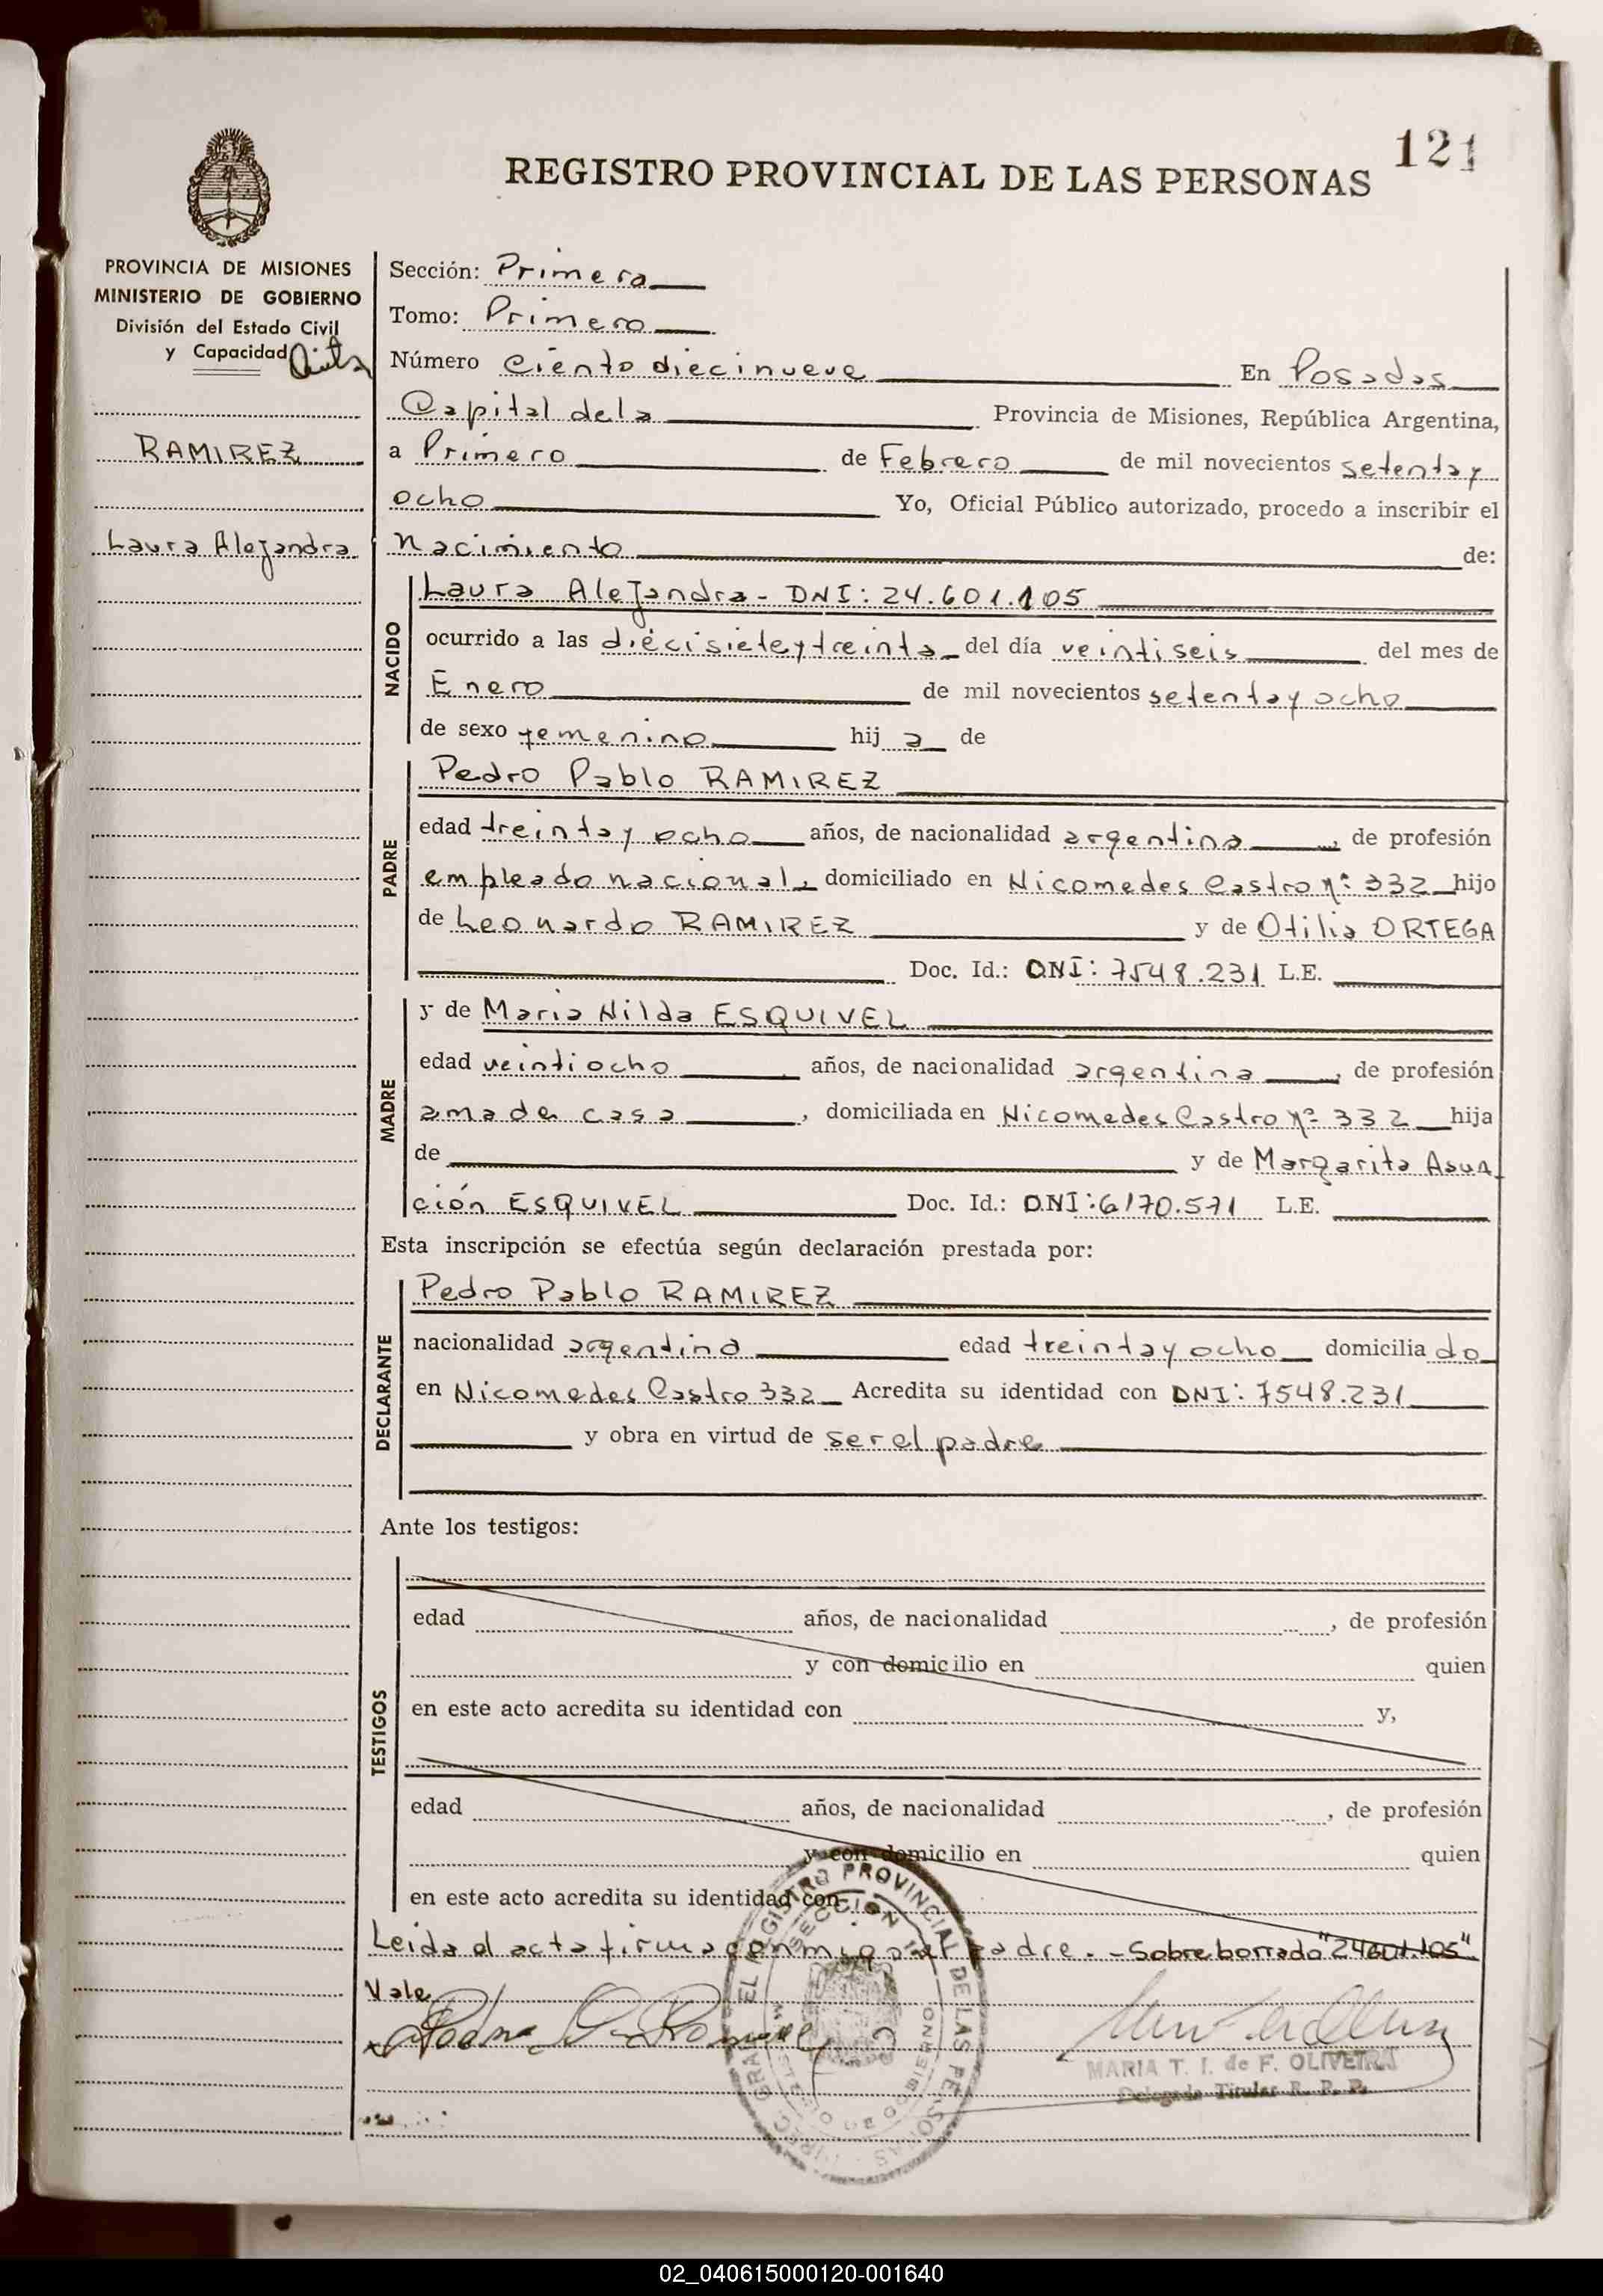 121
REGISTRO PROVINCIAL DE LAS PERSONAS
PROVINCIA DE MISIONES
MINISTERIO DE GOBIERNO
División del Estado Civil
y Capacidad
RAMIREZ
Laura Alejandra
Sección: Primera
Tomo: Primero
Número Ciento diecinueve En Posadas
Capital de la Provincia de Misiones, República Argentina,
a Primero de Febrero de mil novecientos setenta y
ocho Yo, Oficial Público autorizado, procedo a inscribir el
Nacimiento de:
NACIDO
Laura Alejandra - DNI: 24.601.105
ocurrido a las diecisiete y treinta del día veintiseis del mes de
Enero de mil novecientos setenta y ocho
de sexo femenino hij a de
PADRE
Pedro Pablo RAMIREZ
edad treinta y ocho años, de nacionalidad argentina, de profesión
empleado nacional, domiciliado en Nicomedes Castro Nº 332 hijo
de Leonardo RAMIREZ y de Otilia ORTEGA
Doc. Id.: DNI: 7548.231 L.E.
MADRE
y de Maria Nilda ESQUIVEL
edad veintiocho años, de nacionalidad argentina, de profesión
ama de casa, domiciliada en Nicomedes Castro Nº 332 hija
de y de Margarita Asun
ción ESQUIVEL Doc. Id.: DNI: 6170.571 L.E.
Esta inscripción se efectúa según declaración prestada por:
DECLARANTE
Pedro Pablo RAMIREZ
nacionalidad argentina edad treinta y ocho domicilia do
en Nicomedes Castro 332 Acredita su identidad con DNI: 7548.231
y obra en virtud de ser el padre
Ante los testigos:
TESTIGOS
edad años, de nacionalidad , de profesión
y con domicilio en quien
en este acto acredita su identidad con y,
edad años, de nacionalidad , de profesión
y con domicilio en quien
en este acto acredita su identidad con
Leida el acta firma conmigo el padre. - Sobre borrado "24601.105"
Vale
MARIA T. I. de F. OLIVEIRA
Delegada Titular R. P. P.
02_040615000120-001640